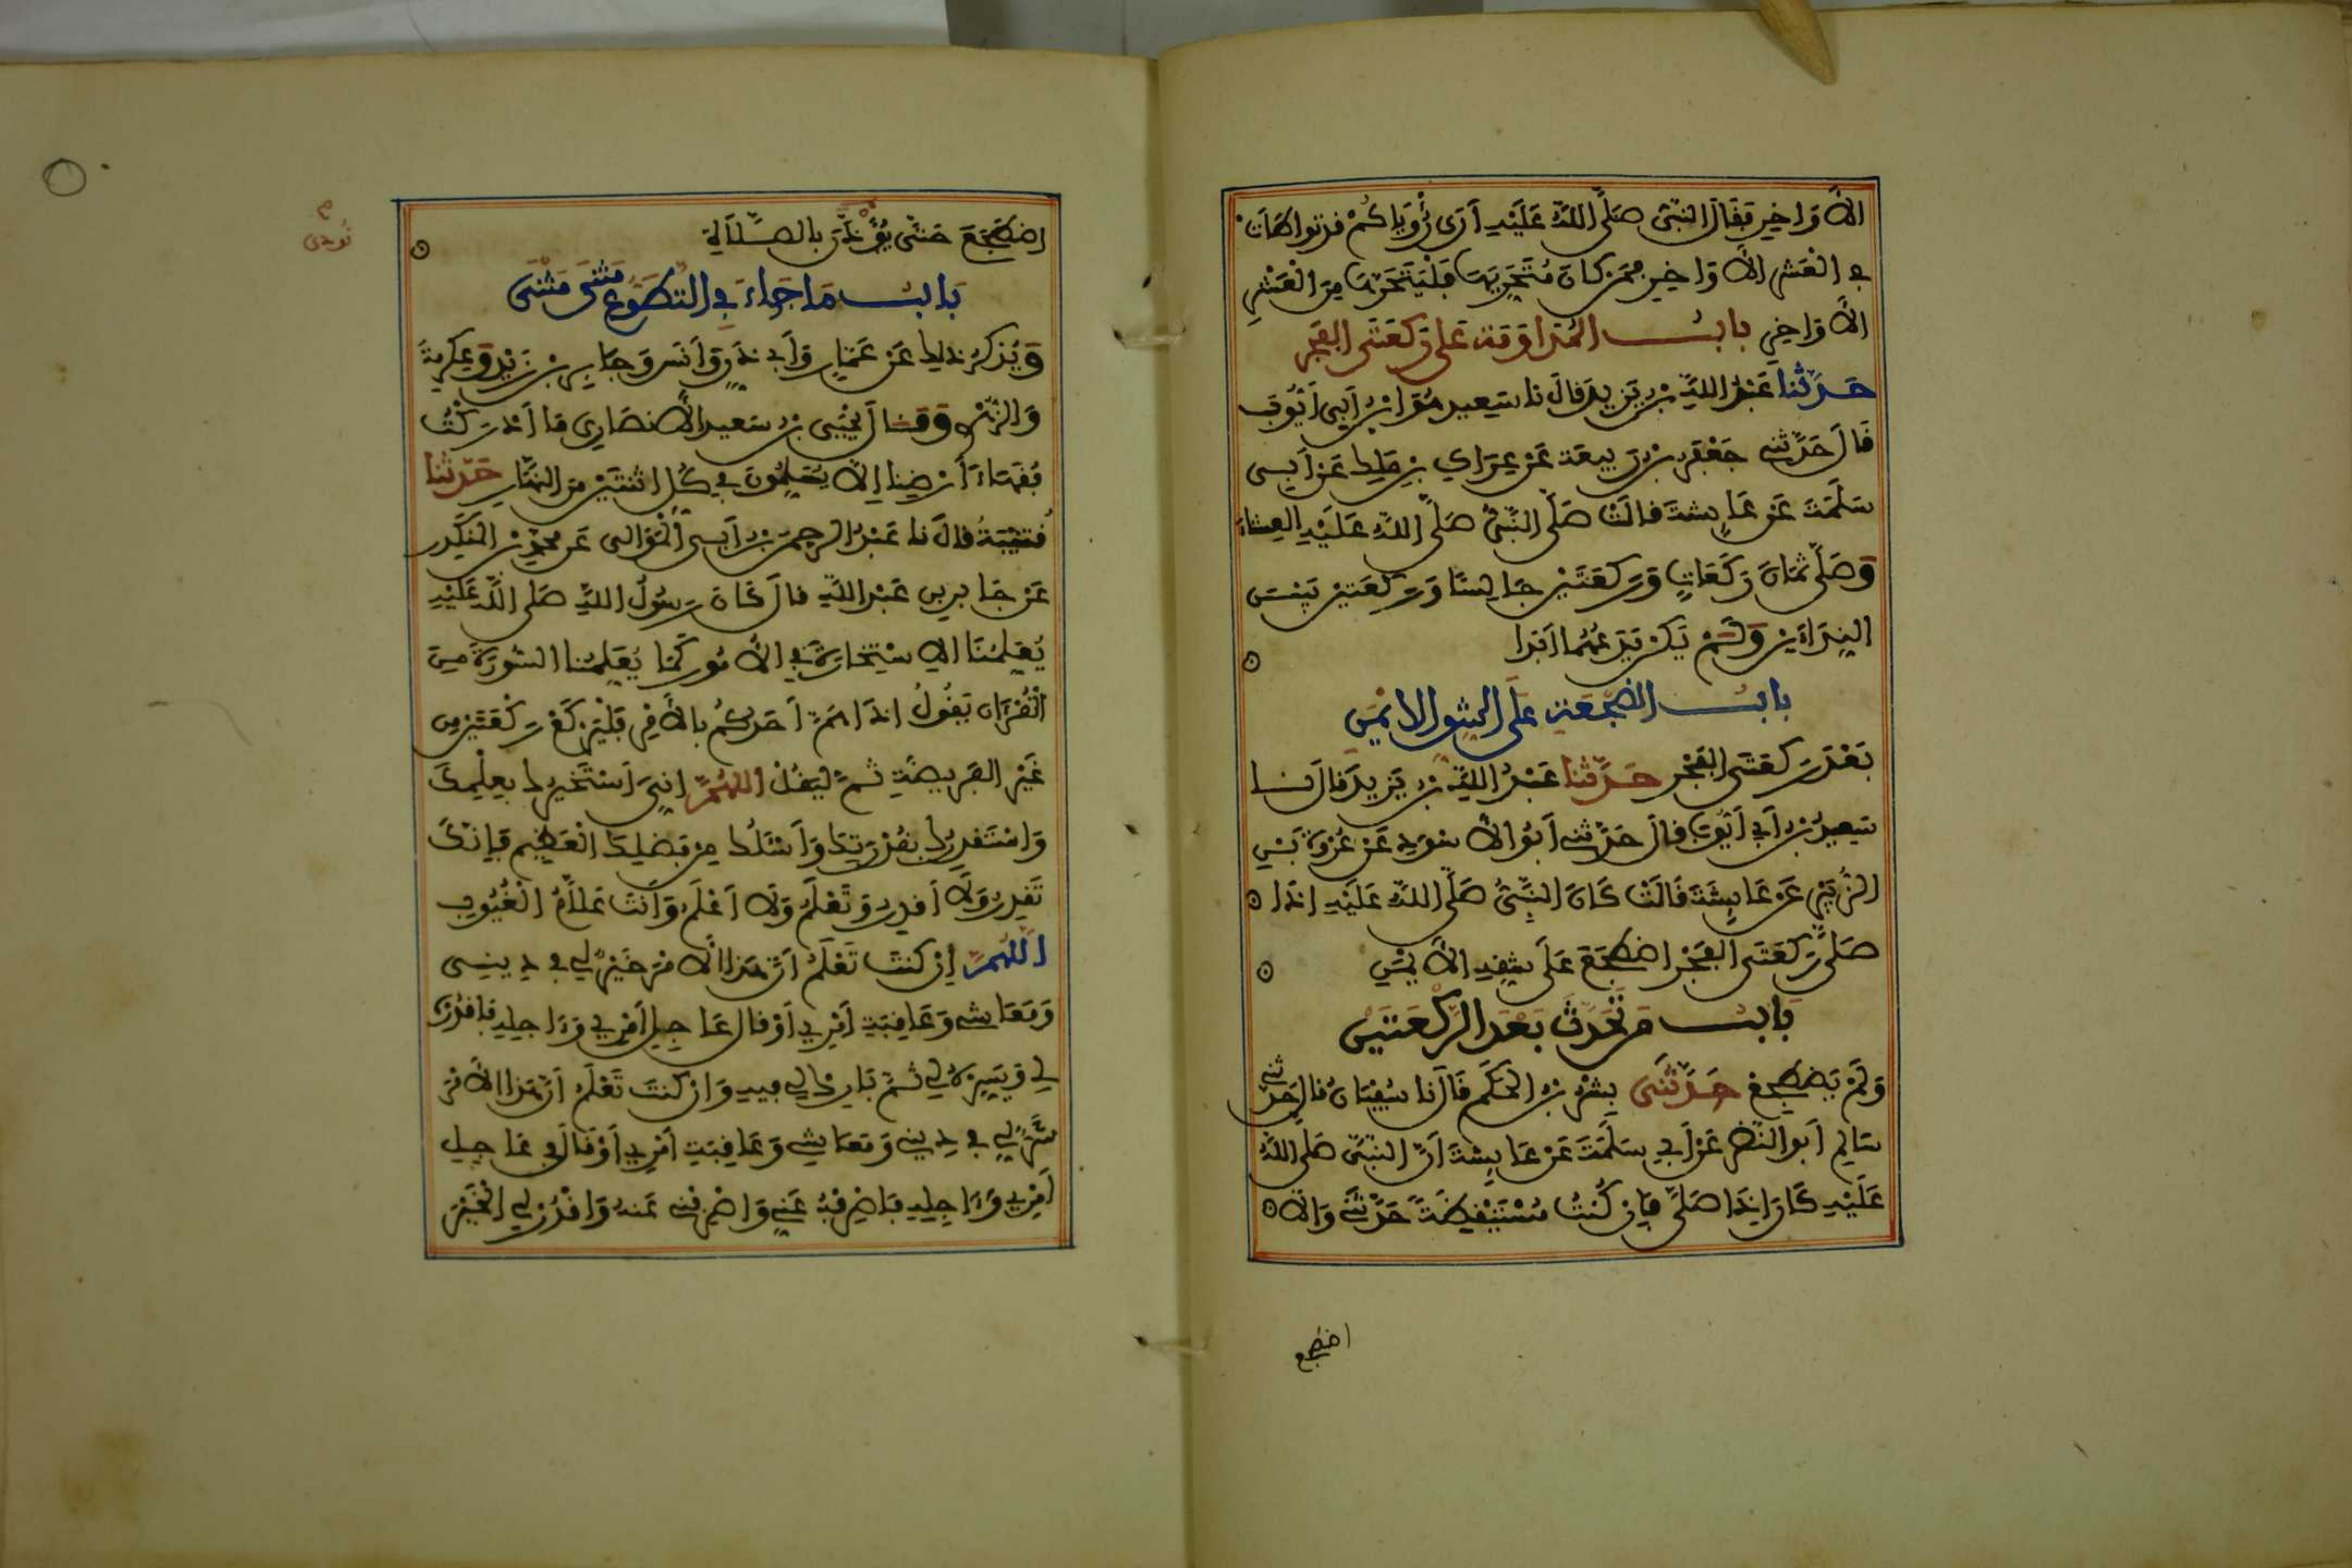 الأَوَاخِرِ فَقَالَ النَّبِيُّ صَلَّى اللَّهُ عَلَيْهِ أَرَى رُؤْيَاكُمْ قد تواطَأَتْ
فِي الْعَشْرِ الأَوَاخِرِ فمن كَانَ مُتَحَرِّيَهَا فَلْيَتَحَرَّهَا مِنَ الْعَشْرِ
الأَوَاخِرِ بابُ المُدَاوَمَةِ عَلَى رَكْعَتَيِ الفَجْرِ
حَدَّثَنَا عَبْدُ اللَّهِ بْنُ يَزِيدَ قَالَ نا سَعِيد هُوَ ابْنُ أَبِي أَيُّوبَ
قَالَ حَدَّثَنِي جَعْفَرُ بْنُ رَبِيعَةَ عَنْ عِرَاكِ بْنِ مَلِكٍ عَنْ أَبِي
سَلَمَةَ عَنْ عَائِشَةَ قَالَتْ صَلَّى النَّبِيُّ صَلَّى اللَّهُ عَلَيْهِ العِشَاءَ
وَصَلَّى ثَمَانَ رَكَعَاتٍ وَرَكْعَتَيْنِ جَالِسًا وَرَكْعَتَيْنِ بَيْنَ
النِّدَاءَيْنِ وَلَمْ يَكُنْ يَدَعُهُمَا أَبَدا
بابُ الضِّجْعَةِ عَلَى الشِّقِّ الأَيْمَنِ
بَعْدَ رَكْعَتَيِ الفَجْرِ حَدَّثَنَا عَبْدُ اللَّهِ بْنُ يَزِيدَ قَالَ نا
سَعِيدُ بْنُ أَبِي أَيُّوبَ قَالَ حَدَّثَنِي أَبُو الأَسْوَدِ عَنْ عُرْوَةَ بْنِ
الزُّبَيْرِ عَنْ عَائِشَةَ قَالَتْ كَانَ النَّبِيُّ صَلَّى اللَّهُ عَلَيْهِ إِذَا
صَلَّى رَكْعَتَيِ الفَجْرِ اضْطَجَعَ عَلَى شِقِّهِ الأَيْمَنِ
بابُ مَن تَحَدَّثَ بَعْدَ الرَّكْعَتَيْنِ
وَلَمْ يَضْطَجِعْ حَدَّثَنَى بِشْرُ بْنُ الحَكَمِ قَالَ نا سُفْيَانُ قَالَ حَدَّثَنِي
سَالِمٌ أَبُو النَّضْرِ عَنْ أَبِي سَلَمَةَ عَنْ عَائِشَةَ أَنَّ النَّبِيَّ صَلَّى اللَّهُ
عَلَيْهِ كَانَ إِذَا صَلَّى فَإِن كُنْتُ مُسْتَيْقِظَةً حَدَّثَنِي وَإِلَّا
اضطجع
اضْطَجَعَ حَتَّى يُؤْذَنَ بِالصَّلَاةِ
نودي
بَابُ مَا جَاءَ فِي التَّطَوُّعِ مَثْنَى مَثْنَى
وَيُذْكَرُ ذَلِكَ عَنْ عَمَّارٍ وَأَبِي ذَرٍّ وَأَنَسٍ وَجَابِرِ بْنِ زَيْدٍ وَعِكْرِمَةَ
وَالزُّهْرِي وَقَالَ يَحْيَى بْنُ سَعِيدٍ الأَنْصَارِي مَا أَدْرَكْتُ
فُقَهَاءَ أَرْضِنَا إِلَّا يُسَلِّمُونَ فِي كُلِّ اثْنَتَيْنِ مِنَ النَّهَارِ حَدَّثَنَا
قُتَيْبَةُ قَالَ نا عَبْدُ الرَّحْمَنِ بْنُ أَبِي الْمَوَالِي عَن مُحَمَّدِ بْنِ المُنْكَدِرِ
عَنْ جَابِرِ بِنِ عَبْدِ اللَّهِ قَالَ كَانَ رَسُولُ اللَّهِ صَلَّى اللَّهُ عَلَيْهِ
يُعَلِّمُنَا الاِسْتِخَارَةَ فِي الأُمُورِ كَمَا يُعَلِّمُنَا السُّورَةَ مِنَ
الْقُرْآنِ يَقُولُ إِذَا هَمَّ أَحَدُكُمْ بِالأَمْرِ فَلْيَرْكَعْ رَكْعَتَيْنِ مِن
غَيْرِ الفَرِيضَةِ ثُمَّ لْيَقُلْ اللَّهُمَّ إِنِّيَ أَسْتَخِيرُكَ بِعِلْمِكَ
وَأَسْتَقْدِرُكَ بِقُدْرَتِكَ وَأَسْئَلُكَ مِنْ فَضْلِكَ الْعَظِيمِ فَإِنَّكَ
تَقْدِرُ وَلَا أَقْدِرُ وَتَعْلَمُ وَلَا أَعْلَمُ وَأَنْتَ عَلَّامُ الْغُيُوبِ
اللَّهُمَّ إِنْ كنتَ تَعْلَمُ أَنَّ هَذَا الأَمْرَ خَيْرٌ لِي فِي دِينِي
وَمَعَاشِي وَعَاقِبَةِ أَمْرِي أَوْ قَالَ عَاجِلِ أَمْرِي وَءَاجِلِهِ فَاقْدُرْهُ
لِي وَيَسِّرْهُ لِي ثُمَّ بَارِكْ لِي فِيهِ وَإِنْ كنتَ تَعْلَمُ أَنَّ هَذَا الأَمْرَ
شَرٌّ لِي فِي دِينِي وَمَعَاشِي وَعَاقِبَةِ أَمْرِي أَوْ قَالَ فِي عَاجِلِ
أَمْرِي وَءَاجِلِهِ فَاصْرِفْهُ عَنِّي وَاصْرِفْنِي عَنهُ وَاقْدُرْ لِي الْخَيْرَ